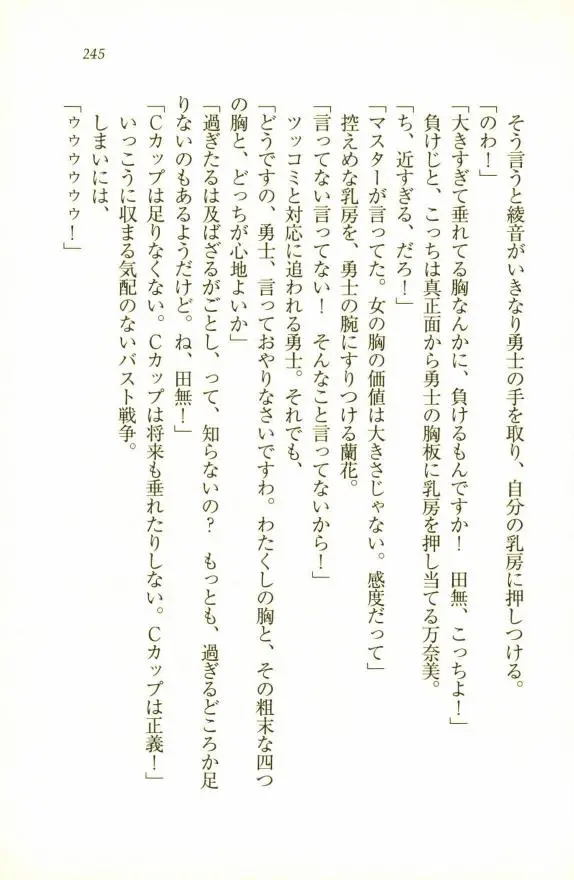 245
そう言うと綾音がいきなり勇士の手を取り、自分の乳房に押しつける。
「のわ！」
「大きすぎて垂れてる胸なんかに、負けるもんですか！　田無、こっちよ！」
負けじと、こっちは真正面から勇士の胸板に乳房を押し当てる万奈美。
「ち、近すぎる、だろ！」
「マスターが言ってた。女の胸の価値は大きさじゃない。感度だって」
控えめな乳房を、勇士の腕にすりつける蘭花。
「言ってない言ってない！　そんなこと言ってないから！」
ツッコミと対応に追われる勇士。それでも、
「どうですの、勇士、言っておやりなさいですわ。わたくしの胸と、その粗末な四つ
の胸と、どっちが心地よいか」
「過ぎたるは及ばざるがごとし、って、知らないの？　もっとも、過ぎるどころか足
りないのもあるようだけど。ね、田無！」
「Ｃカップは足りなくない。Ｃカップは将来も垂れたりしない。Ｃカップは正義！」
いっこうに収まる気配のないバスト戦争。
しまいには、
「ゥゥゥゥゥゥ！」